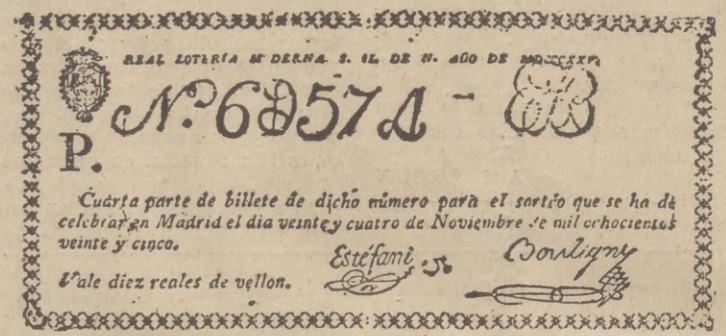 REAL LOTERÍA M DERNA S. IL DE N. AÑO DE MDCCCXXV.
N.º 6057A -
P.
Cuarta parte de billete de dicho número para el sortéo que se ha de
celebrar en Madrid el dia veinte y cuatro de Noviembre de mil ochocientos
veinte y cinco.
Estéfani Bouligny
Vale diez reales de vellon.